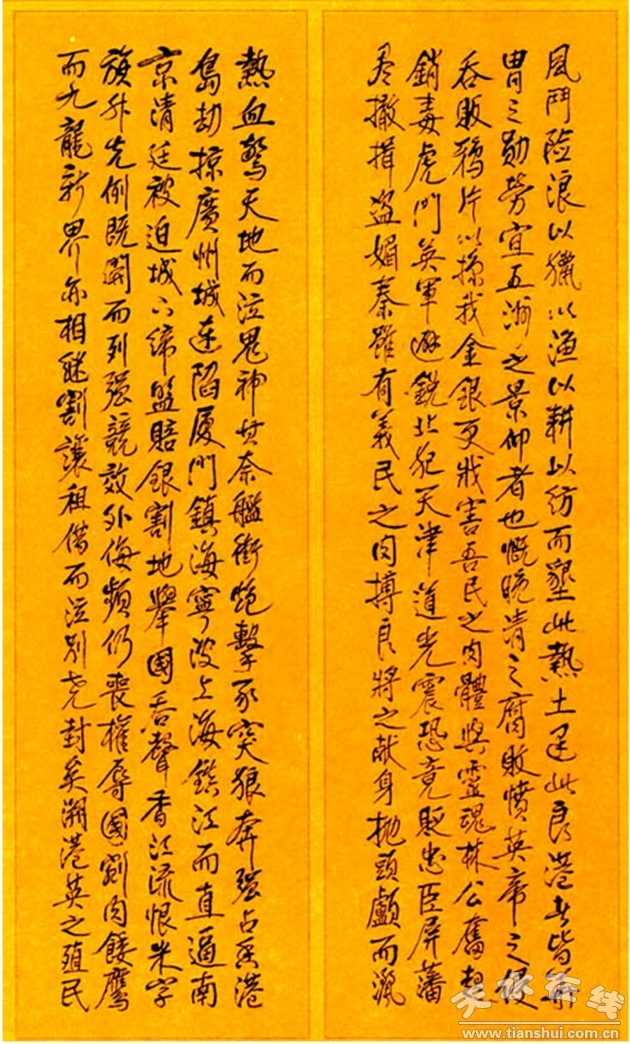 風鬥險浪以獵以漁以耕以紡而墾此熱土建此良港者皆華
胄之勛勞宜五洲之景仰者也慨晚清之腐敗憤英帝之侵
吞販鴉片以掠我金銀更戕害吾民之肉體與靈魂林公奮起
銷毒虎門英軍避銳北犯天津道光震恐竟貶忠臣屏藩
盡撤揖盜媚秦雖有義民之肉搏良將之献身拋頭顱而濺
熱血驚天地而泣鬼神其奈艦衝炮擊豕突狼奔强占香港
島劫掠廣州城連陷厦門鎮海寧波上海鎮江而直逼南
京清廷被迫城下締盟賠銀割地舉國吞聲香江流恨米字
旗升先例既開而列强競效外侮頻仍喪權辱國割肉餧鷹
而九龍新界亦相繼割讓租借而泣别堯封矣溯港英之殖民
天水在线
www.tianshui.com.cn